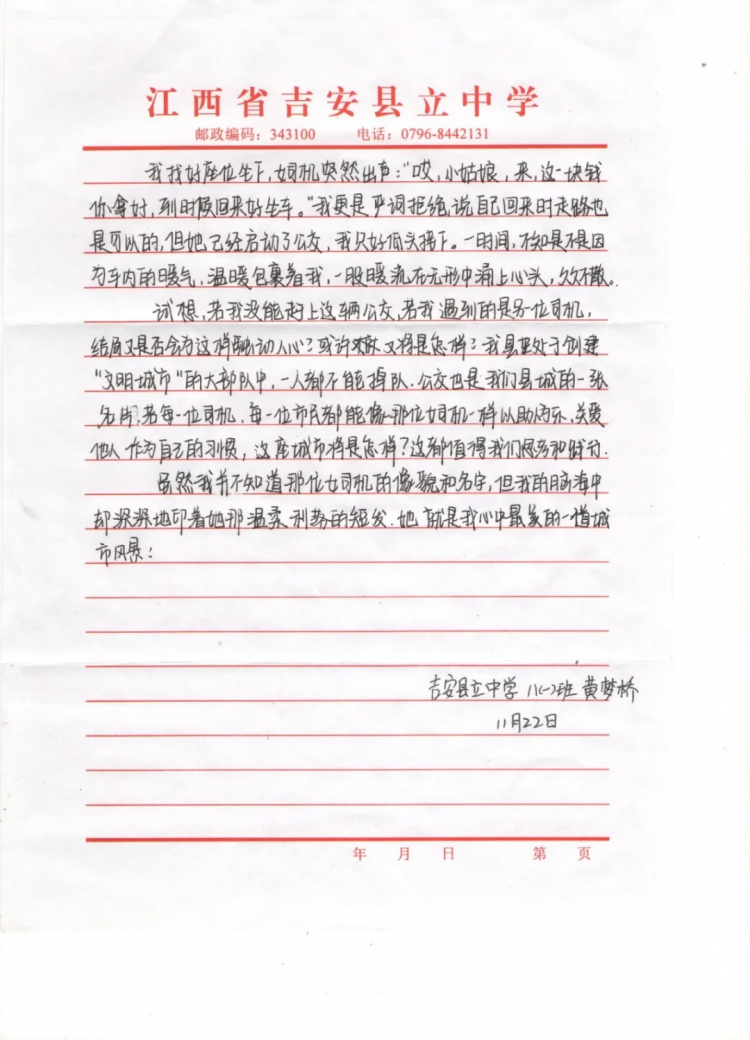 江西省吉安县立中学
邮政编码：343100 电话：0796-8442131
我找好座位坐下，女司机突然出声：“哎，小姑娘，来，这一块钱
你拿好，到时候回来好坐车。”我更是严词拒绝，说自己回来时走路也
是可以的，但她已经启动了公交，我只好低头接下。一时间，不知是不是因
为车内的暖气，温暖包裹着我，一股暖流在无形中涌上心头，久久不散。
试想，若我没能赶上这辆公交，若我遇到的是另一位司机，
结局又是否会为这样触动人心？或许未来又将是怎样？我县正处于创建
“文明城市”的大部队中，一人都不能掉队。公交也是我们县城的一张
名片，若每一位司机，每一位市民都能像那位女司机一样以助为乐，关爱
他人作为自己的习惯，这座城市将是怎样？这都值得我们思考和践行.
虽然我并不知道那位女司机的像貌和名字，但我的脑海中
却深深地印着她那温柔利落的短发.她就是我心中最美的一道城
市风景！
吉安县立中学 八(一)班 黄梦桥
11月22日
年 月 日 第 页